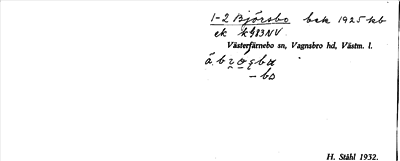 1-2 Björsbo bsk 1925 kb
ek k483NV
Västerfärnebo sn, Vagnsbro hd, Västm. l.
– bo
H. Ståhl 1932.